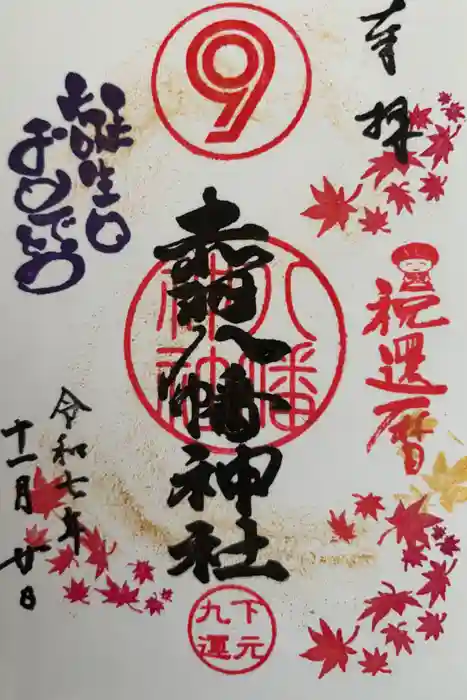 奉拝
祝還暦
9
赤羽八幡神社
八幡
神社
下元
九運
お誕生日
おめでとう
令和七年
十一月廿日